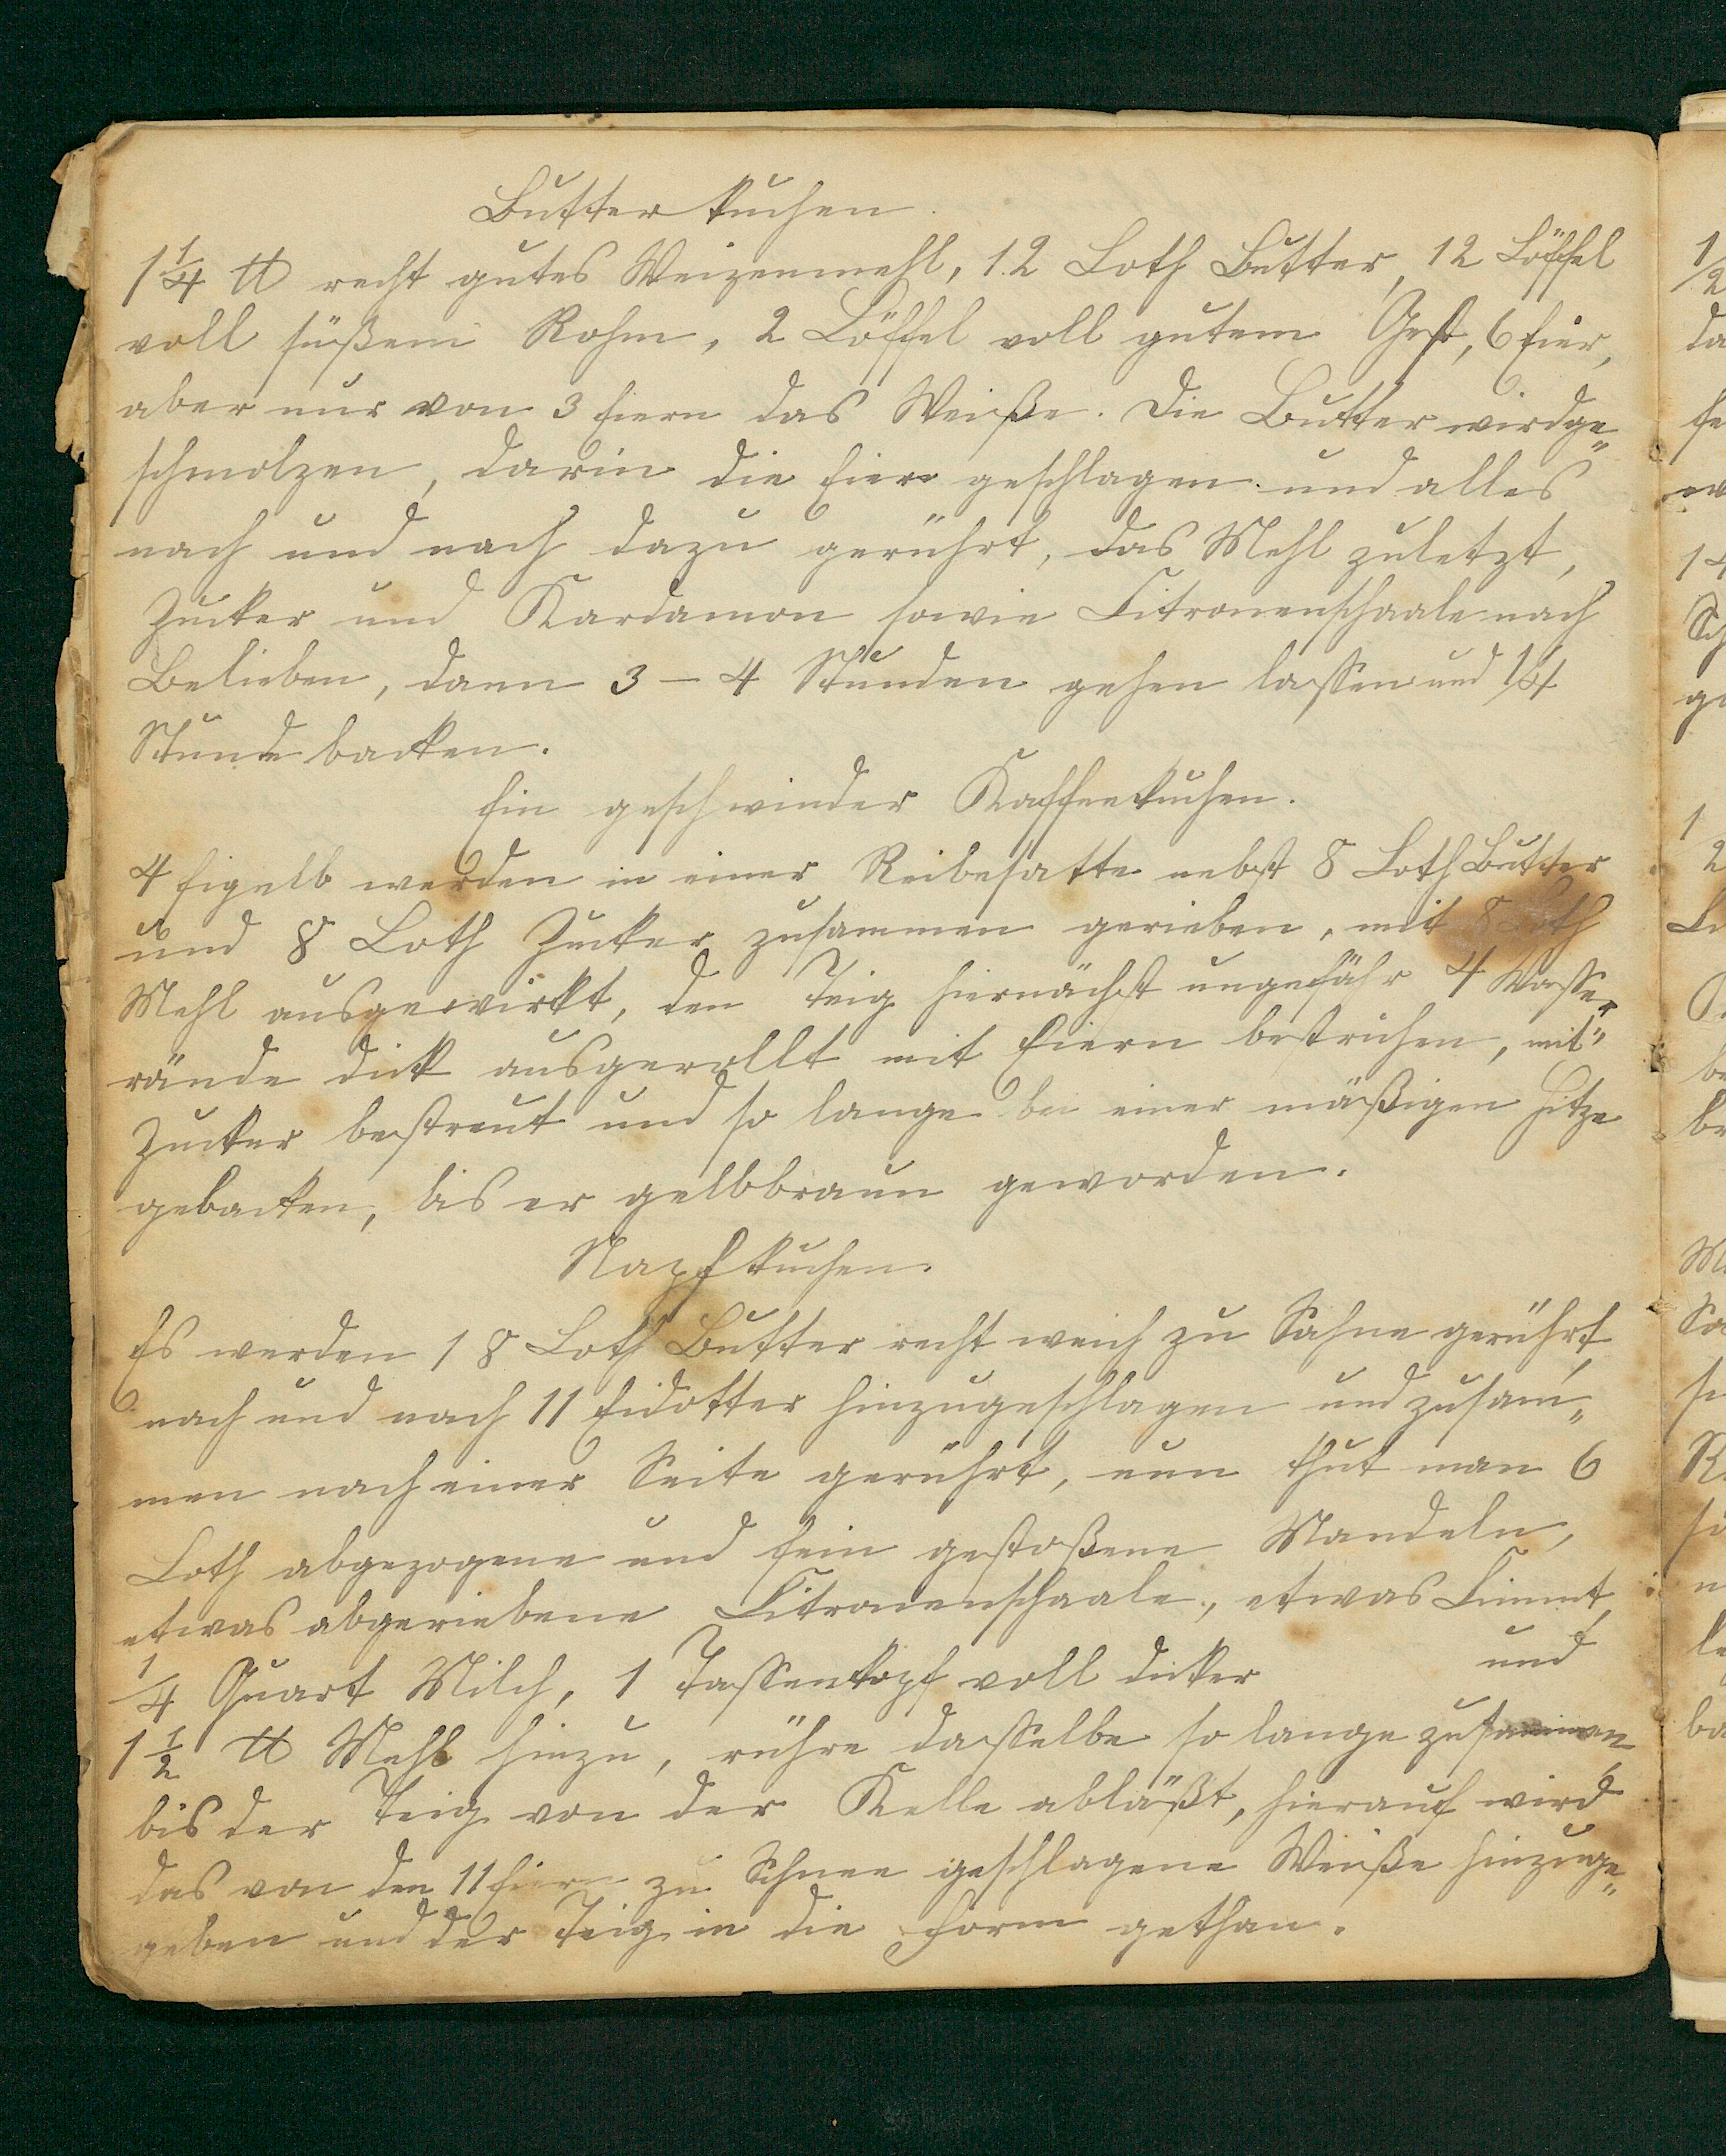 Butterkuchen.
1 1/4 ℔ recht gutes Weizenmehl, 12 Loth Butter, 12 Löffel
voll süßem Rohm, 2 Löffel voll gutem Gest, 6 Eier,
aber nur von 3 Eiern das Weiße. Die Butter wird ge„
schmolzen, darin die Eier geschlagen und alles
nach und nach dazu gerührt, das Mehl zuletzt,
Zucker und Kardamon sowie Citronenschaale nach
Belieben, dann 3 – 4 Stunden gehen lassen und 1/4
Stunde backen.
Ein geschwinder Kaffeekuchen.
4 Eigelb werden in einer Reibesatte nebst 8 Loth Butter
und 8 Loth Zucker zusammen gerieben, mit 8 Loth
Mehl ausgewirkt, den Teig hiernächst ungefähr 4 Messer„
rände dick ausgerollt mit Eiern bestrichen, mit
Zucker bestreut und so lange bei einer mäßigen Hitze
gebacken, bis er gelbbraun geworden.
Napfkuchen.
Es werden 18 Loth Butter recht weich zu Sahne gerührt,
nach und nach 11 Eidotter hinzugeschlagen und zusam„
men nach einer Seite gerührt, nun thut man 6
Loth abgezogene und fein gestoßene Mandeln,
etwas abgeriebene Citronenschaale, etwas Cimmt,
1/4 Quart Milch, 1 Tassenkopf voll dicker und
1 1/2 ℔ Mehl hinzu, rühre dasselbe so lange zusammen,
bis der Teig von der Kelle abläßt, hierauf wird
das von den 11 Eiern zu Schnee geschlagene Weiße hinzuge„
geben und der Teig in die Form gethan.